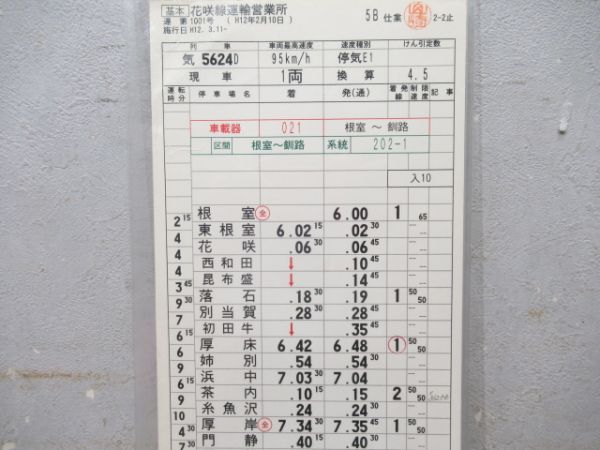 基本 花咲線運輸営業所
運 第 1001号 ( H12年2月10日 ) 5B 仕業 2-2止
施行日 H12. 3.11-
列車 車両最高速度 速度種別 けん引定数
気 5624D 95km/h 停気E1
現車 1両 換算 4.5
運転時分 停車場名 着 発(通) 着発線 制限速度 記事
車載器 021 根室 ～ 釧路
区間 根室～釧路 系統 202-1
入10
根室 全 6.00 1 65
2 15 東根室 6.02 15 .02 30
4 花咲 .06 30 .06 45
4 西和田 ↓ .10 45
4 昆布盛 ↓ .14 45
3 45 落石 .18 30 .19 1 50 50
9 30 別当賀 .28 30 .28 45
7 初田牛 ↓ .35 45
6 15 厚床 6.42 6.48 1 50 50
6 姉別 .54 .54 30
9 浜中 7.03 30 7.04
6 15 茶内 .10 15 .15 2 50 50
9 糸魚沢 .24 .24 30
10 厚岸 全 7.34 30 7.35 45 1 50 50
4 30 門静 .40 15 .40 45
7 30